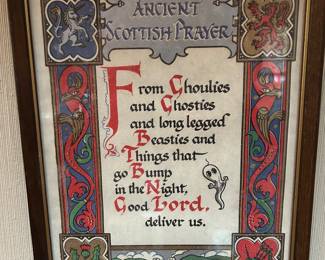 ANCIENT
SCOTTISH PRAYER
From Ghoulies
and Ghosties
and long legged
Beasties and
Things that
go Bump
in the Night,
Good Lord,
deliver us.